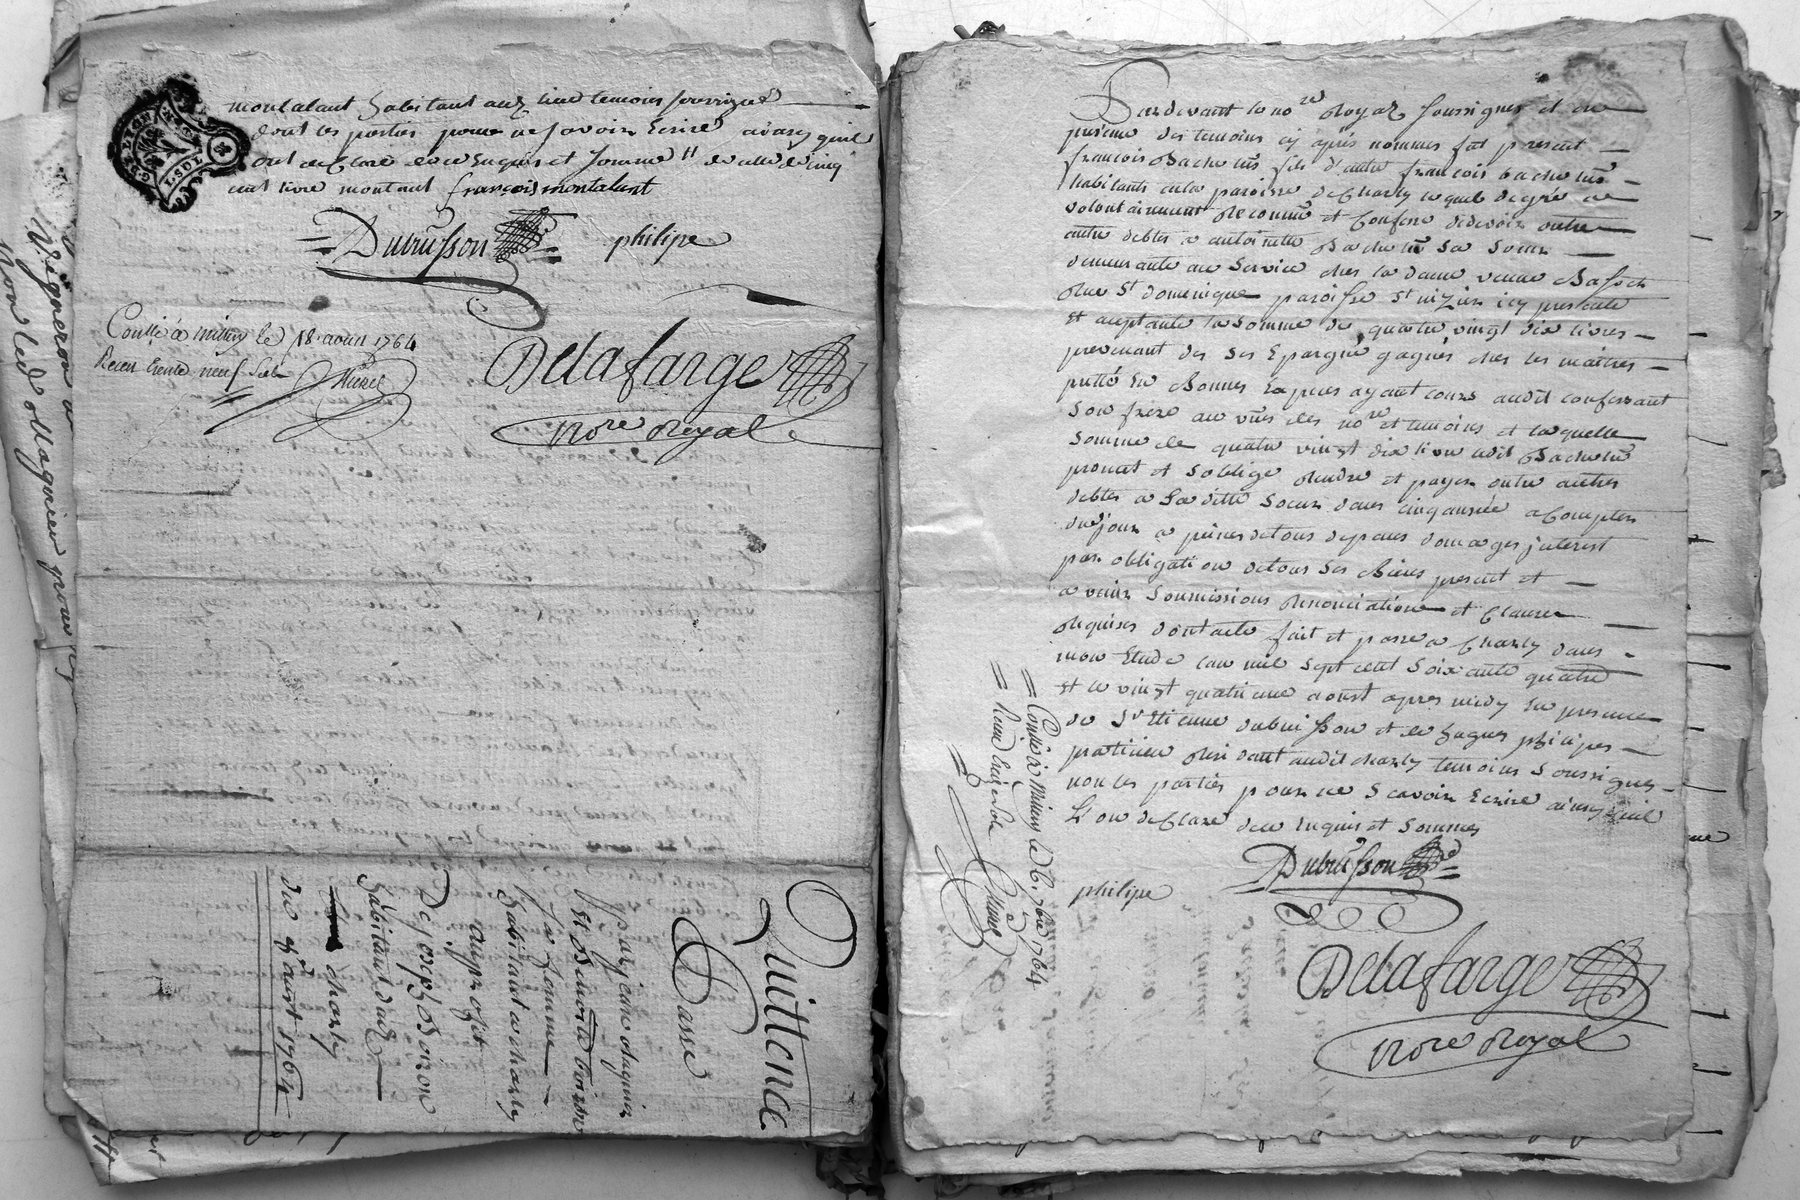 montalant habitant audt lieu temoins soussignes
dont les parties pour ne savoir Ecrire ainsy quils
ont declaré de ce Enquis et sommés de celle de cinq
cent livre montant françois montalant
Dubuisson philipe
Conllé à millery le 18 aoust 1764
Receu trente neuf sols
Delafarge
No.re Royal
Quittence
Passé
par jeane daguin
et benoite boiron
sa femme
habitant de charly
au profit
De joseph Boiron
habitant dudt
charly
du 9 aoust 1764
GEN. LION
1. SOL
Vigneron a
Pardevant le no.re Royal soussignes et en
presence des temoins cy après nommes fut present
françois Bachelus fils d'autre françois bachelus
habitants en la paroisse de Charly lequel de gré
volontairement Reconnu et Confesse de devoir outre
autre debtes a antoinette Bachelus sa soeur
demeurante au service ches la dame veuve
Rue St domenique paroisse St nizier icy presente
et aceptante la somme de quatre vingt dix livres
provenant de ses Epargne gagnés ches les maitres
pretté en Bonnes Espices ayant cours audit confessant
son frere au vus des no.re et temoins et laquelle
somme de quatre vingt dix livre ledit Bachelus
promet et soblige Rendre et payer outre autres
debtes a sa ditte soeur dans cinq année a Compter
du jour a peines de tous depens domages interest
par obligation de tous ses Biens present et
a venir soumissions Renonciation et Clause
Requises dont acte fait et passé a Charly dans
mon Etude lan mil sept cent soixante quatre
et le vingt quatrieme aoust apres midy en presence
de Sr Etienne dubuisson et de hugues philipes
praticien Residant audit charly temoins soussignes
non les parties pour ne scavoir Ecrire ainsy quil
L'on declaré de ce enquis et sommes
Dubuisson
philipe
Delafarge
No.re Royal
Conllé à millery le 6. 7bre 1764
Receu treize sols